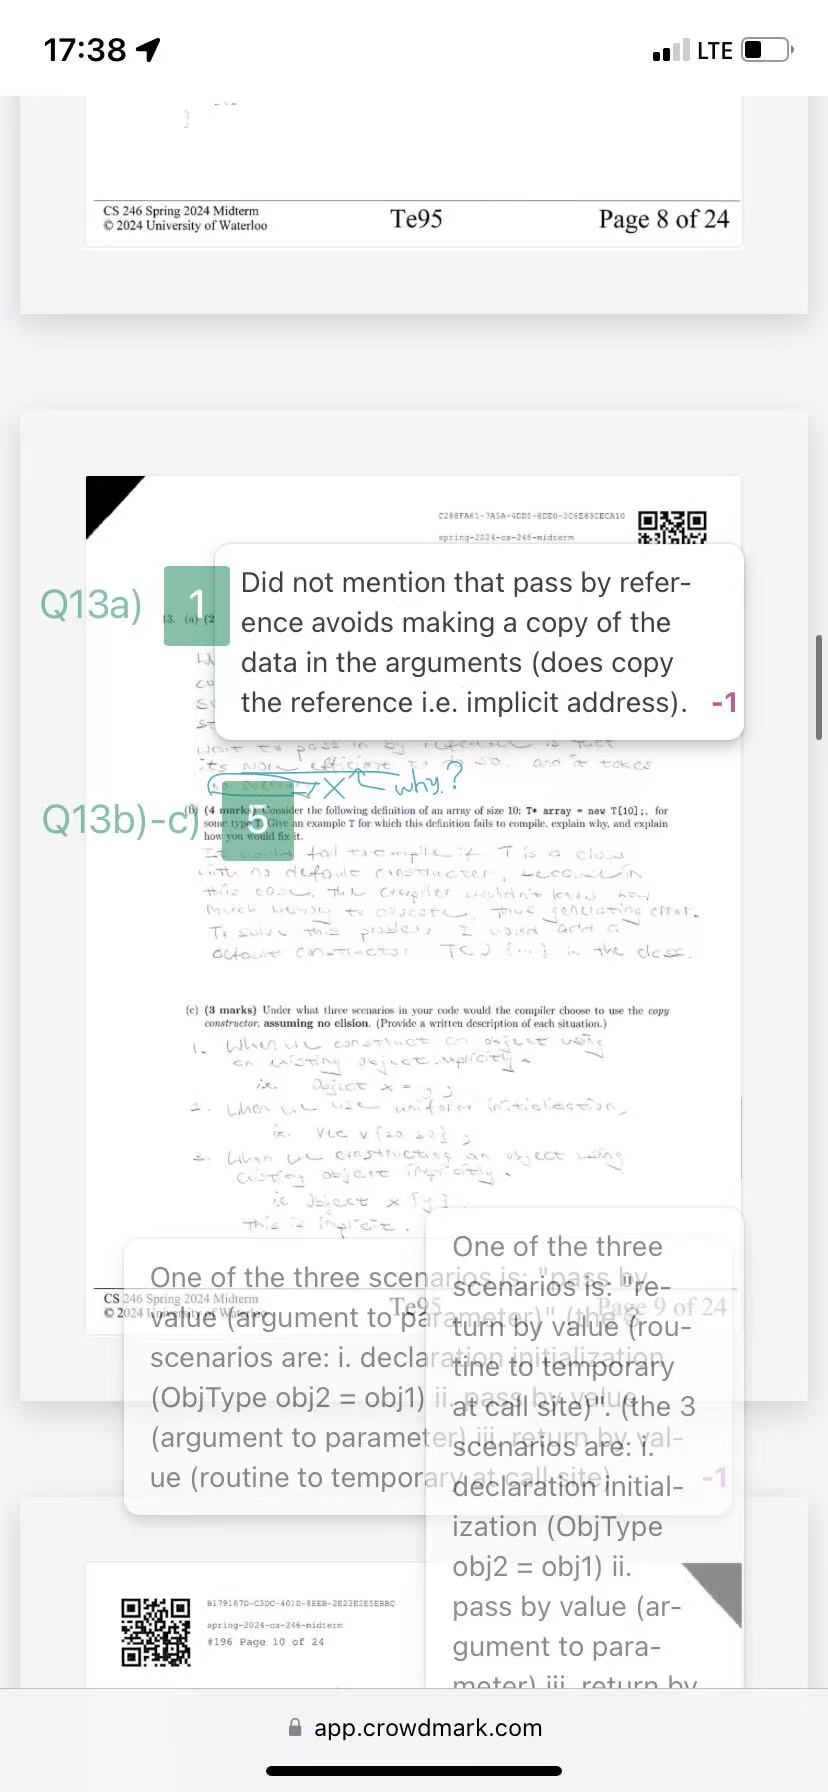 17:38
LTE
}
CS 246 Spring 2024 Midterm
© 2024 University of Waterloo
Te95
Page 8 of 24
C288FA61-7A5A-4DD5-8DE0-3C6E83CECA10
spring-2024-cs-246-midterm
Q13a)
1
13. (a) (2
Did not mention that pass by refer-
ence avoids making a copy of the
data in the arguments (does copy
the reference i.e. implicit address).
-1
want to pass in by reference is that
its more efficient to do so. and it takes
X why?
Q13b)-c)
5
(b) (4 marks) Consider the following definition of an array of size 10: T* array = new T[10];, for
some type T. Give an example T for which this definition fails to compile, explain why, and explain
how you would fix it.
It would fail to compile if T is a class
with no default constructor, because in
this case, the compiler wouldn't know how
much memory to allocate, thus generating error.
To solve this problem, I would add a
default constructor T() {...} in the class.
(c) (3 marks) Under what three scenarios in your code would the compiler choose to use the copy
constructor, assuming no elision. (Provide a written description of each situation.)
1. When we construct an object using
an existing object explicitly.
ie. Object x = y;
2. When we use uniform initialization,
ie. Vec v{20 30};
3. When we constructing an object using
existing object implicitly.
ie Object x {y}.
this is implicit.
One of the three scenarios is: "pass by
value (argument to parameter)" (the 3
scenarios are: i. declaration initialization
(ObjType obj2 = obj1) ii. pass by value
(argument to parameter) iii. return by val-
ue (routine to temporary at call site)
-1
CS 246 Spring 2024 Midterm
© 2024 University of Waterloo
Te95
Page 9 of 24
One of the three
scenarios is: "re-
turn by value (rou-
tine to temporary
at call site)". (the 3
scenarios are: i.
declaration initial-
ization (ObjType
obj2 = obj1) ii.
pass by value (ar-
gument to para-
meter) iii. return by
B179187D-C3DC-401D-8EEB-2E23E2E5EBBC
spring-2024-cs-246-midterm
#196 Page 10 of 24
app.crowdmark.com